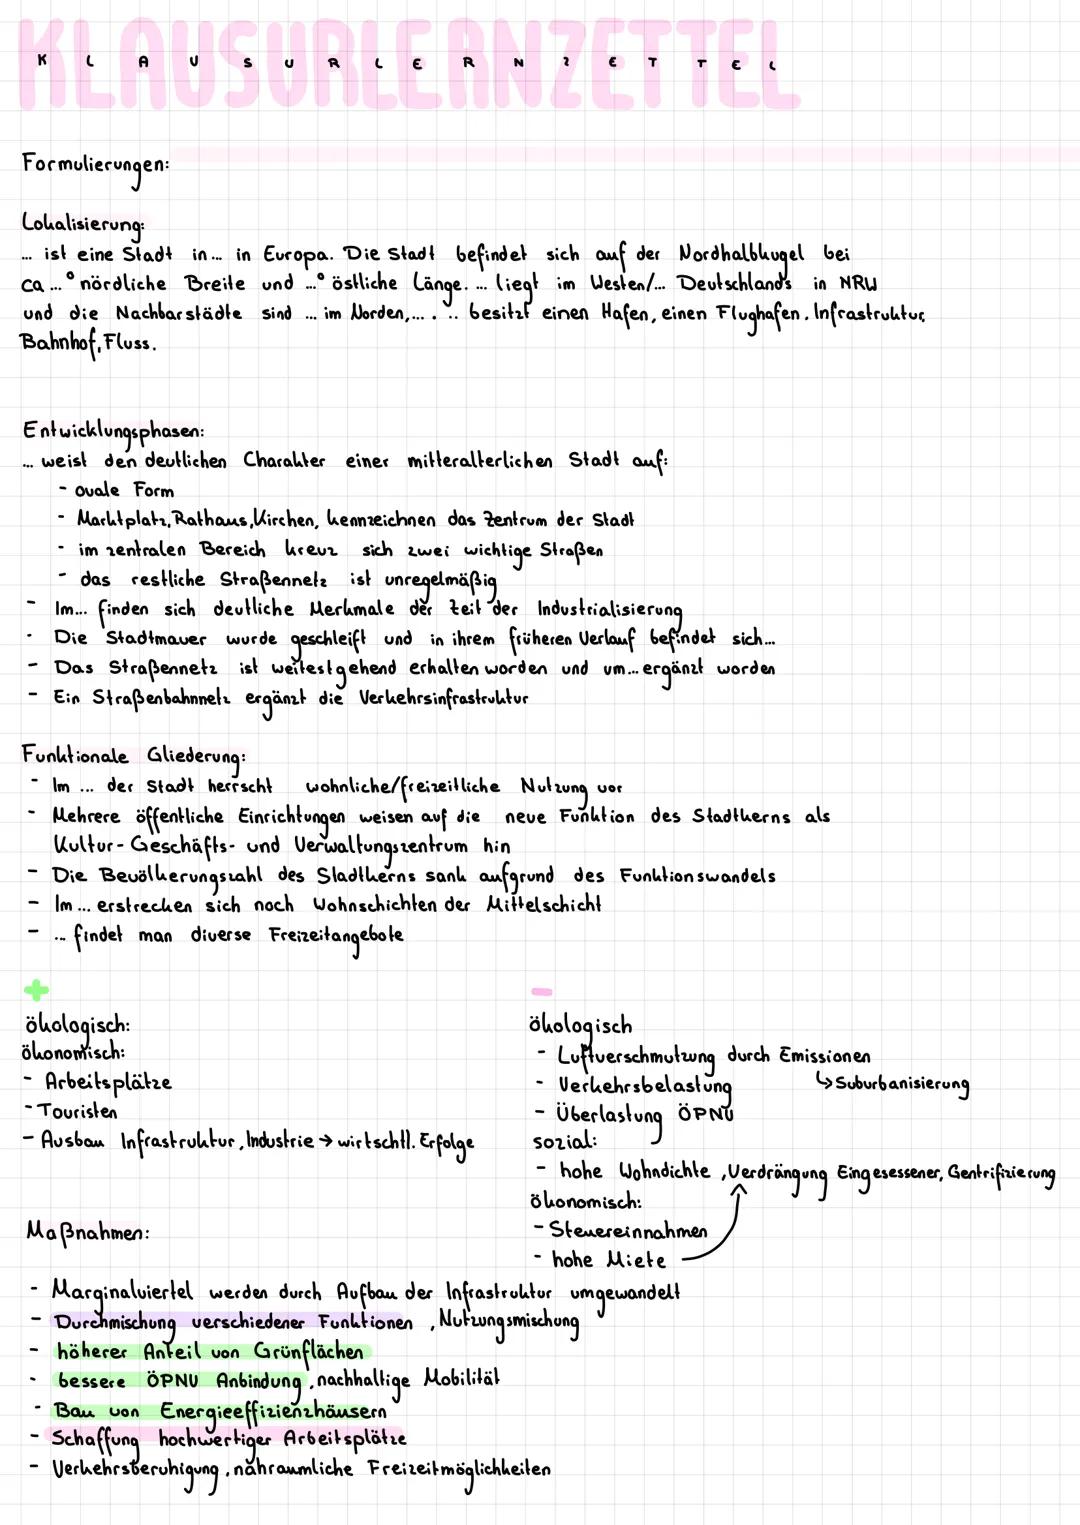 KLAUSURLERNZETTEL
Formulierungen:
Lokalisierung:
... ist eine Stadt in ... in Europa. Die Stadt befindet sich auf der Nordhalbkugel bei
ca ...° nördliche Breite und ...° östliche Länge. ... liegt im Westen/... Deutschlands in NRW
und die Nachbarstädte sind ... im Norden,... . ... besitzt einen Hafen, einen Flughafen. Infrastruktur,
Bahnhof, Fluss.
Entwicklungsphasen:
... weist den deutlichen Charakter einer mitteralterlichen Stadt auf:
- ovale Form
- Marktplatz, Rathaus, Kirchen, kennzeichnen das Zentrum der Stadt
- im zentralen Bereich kreuz sich zwei wichtige Straßen
- das restliche Straßennetz ist unregelmäßig
- Im... finden sich deutliche Merkmale der Zeit der Industrialisierung
- Die Stadtmauer wurde geschleift und in ihrem früheren Verlauf befindet sich...
- Das Straßennetz ist weitestgehend erhalten worden und um... ergänzt worden
- Ein Straßenbahnnetz ergänzt die Verkehrsinfrastruktur
Funktionale Gliederung:
- Im ... der Stadt herrscht wohnliche/freizeitliche Nutzung vor
- Mehrere öffentliche Einrichtungen weisen auf die neue Funktion des Stadtkerns als
Kultur- Geschäfts- und Verwaltungszentrum hin
- Die Bevölkerungszahl des Stadtkerns sank aufgrund des Funktionswandels
- Im ... erstrecken sich noch Wohnschichten der Mittelschicht
- ... findet man diverse Freizeitangebote
+
ökologisch:
ökonomisch:
- Arbeitsplätze
- Touristen
- Ausbau Infrastruktur, Industrie → wirtschtl. Erfolge
-
ökologisch
- Luftverschmutzung durch Emissionen
- Verkehrsbelastung ↳ Suburbanisierung
- Überlastung ÖPNV
sozial:
- hohe Wohndichte, Verdrängung Eingesessener, Gentrifizierung
ökonomisch:
- Steuereinnahmen
- hohe Miete
Maßnahmen:
- Marginalviertel werden durch Aufbau der Infrastruktur umgewandelt
- Durchmischung verschiedener Funktionen, Nutzungsmischung
- höherer Anteil von Grünflächen
- bessere ÖPNV Anbindung, nachhaltige Mobilität
- Bau von Energieeffizienzhäusern
- Schaffung hochwertiger Arbeitsplätze
- Verkehrsberuhigung, nahraumliche Freizeitmöglichkeiten